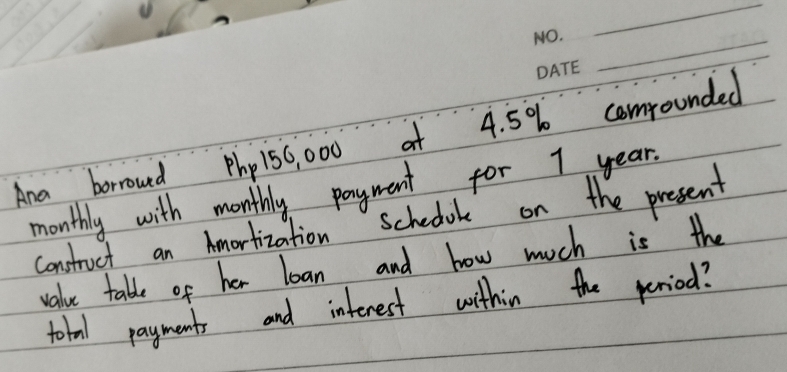 NO.
DATE
Ana borrowed Php150,000 at 4.5% compounded
monthly with monthly payment for 1 year.
Construct an Amortization Schedule on the present
value table of her loan and how much is the
total payments and interest within the period?